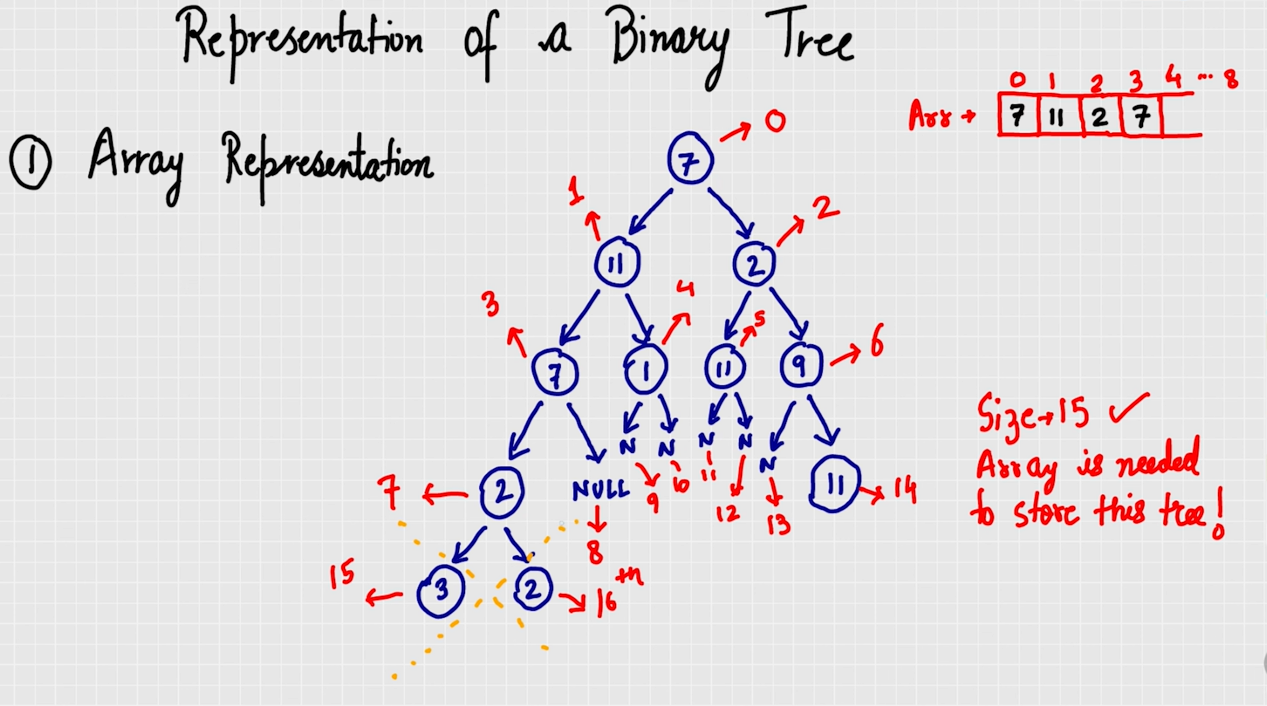 Representation of a Binary Tree
① Array Representation
0 1 2 3 4 ... 8
Arr → 7 11 2 7
7 → 0
1
11
2 → 2
3
7
4
1
5
11
9 → 6
N N N N N
9 10 11 12 13
7 ← 2
NULL
8
11 → 14
15 ← 3
2 → 16th
Size → 15 ✓
Array is needed
to store this tree!